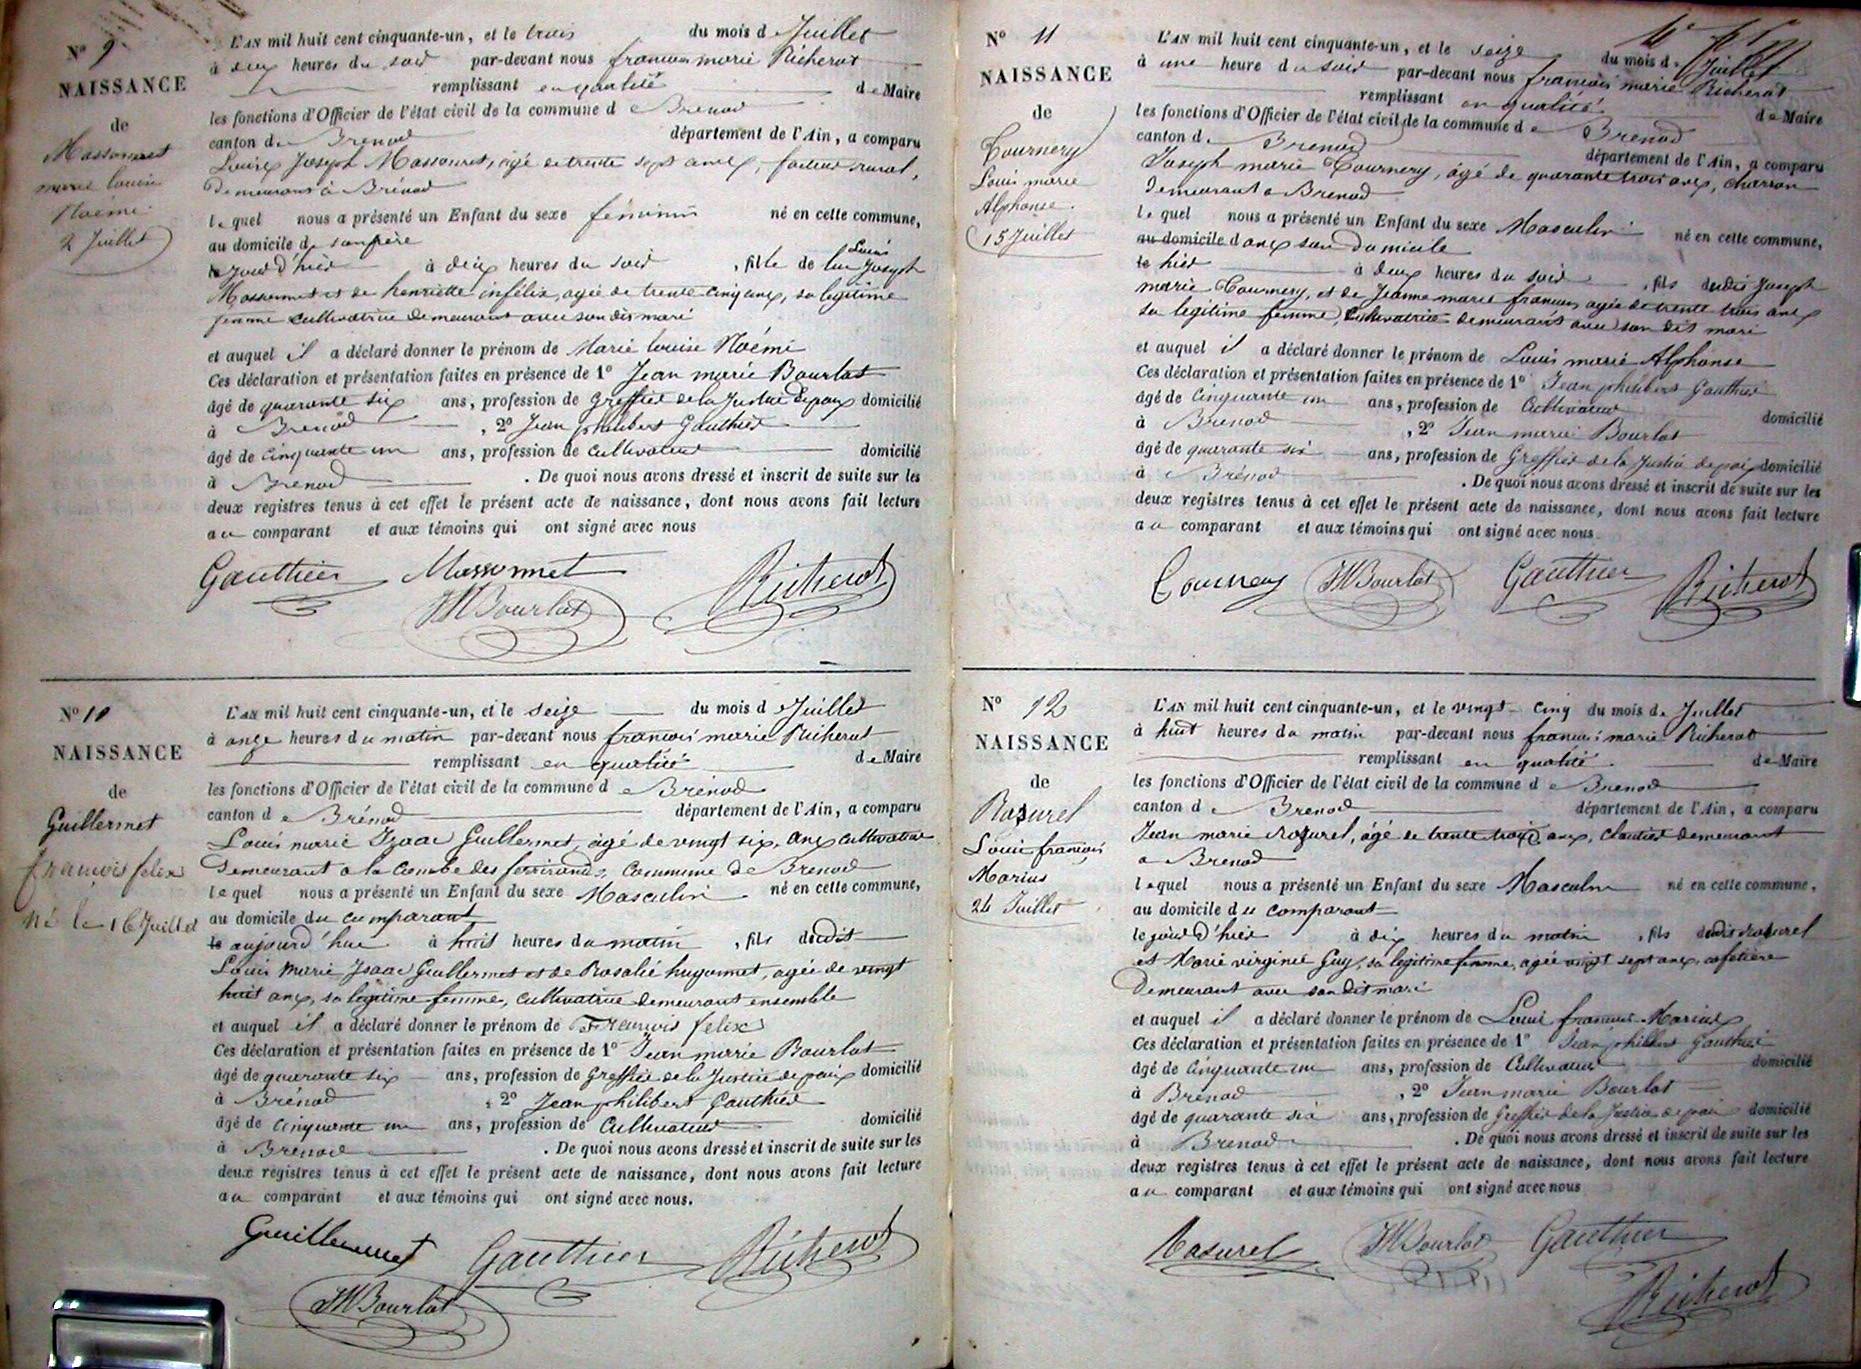 N° 9
NAISSANCE
de
Massonnet
marie louise
Noémi
2 Juillet
L'AN mil huit cent cinquante-un, et le trois du mois de Juillet
à deux heures du soir par-devant nous francois marie Richerot
remplissant en qualité de Maire
les fonctions d'Officier de l'état civil de la commune de Brenod
canton de Brenod département de l'Ain, a comparu
Louis Joseph Massonnet, agé de trente sept ans, facteur rural,
demeurant à Brénod
lequel nous a présenté un Enfant du sexe féminin né en cette commune,
au domicile de son père
le jour d'hier à deux heures du soir, fille de lui Louis Joseph
Massonnet et de henriette infélix, agée de trente cinq ans, sa legitime
femme cultivatrice demeurant avec son dit mari
et auquel il a déclaré donner le prénom de Marie louise Noémi
Ces déclaration et présentation faites en présence de 1° Jean marie Bourlot
âgé de quarante six ans, profession de Greffier de la Justice de paix domicilié
à Brenod, 2° Jean philibert Gauthier
âgé de cinquante un ans, profession de cultivateur domicilié
à Brenod. De quoi nous avons dressé et inscrit de suite sur les
deux registres tenus à cet effet le présent acte de naissance, dont nous avons fait lecture
au comparant et aux témoins qui ont signé avec nous
Gauthier Massonnet Richerot
JM Bourlot
N° 10
NAISSANCE
de
Guillermet
françois felix
né le 16 Juillet
L'AN mil huit cent cinquante-un, et le seize du mois de Juillet
à onze heures du matin par-devant nous francois marie Richerot
remplissant en qualité de Maire
les fonctions d'Officier de l'état civil de la commune de Brénod
canton de Brénod département de l'Ain, a comparu
Louis marie Isaac Guillermet, agé de vingt six ans cultivateur
demeurant a la Combe des ferrirands, Commune de Brenod
lequel nous a présenté un Enfant du sexe Masculin né en cette commune,
au domicile du comparant
le aujourd'hui à huit heures du matin, fils dudit
Louis Marie Isaac Guillermet et de Rosalie hugonnet, agée de vingt
huit ans, sa legitime femme, cultivatrice demeurant ensemble
et auquel il a déclaré donner le prénom de François felix
Ces déclaration et présentation faites en présence de 1° Jean marie Bourlot
âgé de quarante six ans, profession de Greffier de la Justice de paix domicilié
à Brénod, 2° Jean philibert Gauthier
âgé de cinquante un ans, profession de Cultivateur domicilié
à Brénod. De quoi nous avons dressé et inscrit de suite sur les
deux registres tenus à cet effet le présent acte de naissance, dont nous avons fait lecture
au comparant et aux témoins qui ont signé avec nous.
Guillermet Gauthier Richerot
JM Bourlot
N° 11
NAISSANCE
de
Tournery
Louis marie
Alphonse.
15 Juillet
L'AN mil huit cent cinquante-un, et le seize du mois de Juillet
à une heure du soir par-devant nous francois marie Richerot
remplissant en qualité de Maire
les fonctions d'Officier de l'état civil de la commune de Brenod
canton de Brenod département de l'Ain, a comparu
Joseph marie Tournery, agé de quarante trois ans, charron
demeurant a Brenod
lequel nous a présenté un Enfant du sexe Masculin né en cette commune,
au domicile dans son domicile
le hier à deux heures du soir, fils dudit Joseph
marie Tournery, et de Jeanne marie francois, agée de trente trois ans
sa legitime femme, cultivatrice demeurant avec son dit mari
et auquel il a déclaré donner le prénom de Louis marie Alphonse
Ces déclaration et présentation faites en présence de 1° Jean philibert Gauthier
âgé de Cinquante un ans, profession de Cultivateur domicilié
à Brenod, 2° Jean marie Bourlot
âgé de quarante six ans, profession de Greffier de la Justice de paix domicilié
à Brénod. De quoi nous avons dressé et inscrit de suite sur les
deux registres tenus à cet effet le présent acte de naissance, dont nous avons fait lecture
au comparant et aux témoins qui ont signé avec nous.
Tournery JM Bourlot Gauthier Richerot
N° 12
NAISSANCE
de
Razurel
Louis françois
Marius
24 Juillet
L'AN mil huit cent cinquante-un, et le vingt-cinq du mois de Juillet
à huit heures du matin par-devant nous francois marie Richerot
remplissant en qualité de Maire
les fonctions d'Officier de l'état civil de la commune de Brenod
canton de Brenod département de l'Ain, a comparu
Jean marie Razurel, âgé de trente trois ans, cloutier demeurant
a Brenod
lequel nous a présenté un Enfant du sexe Masculin né en cette commune,
au domicile du comparant
le jour d'hier à dix heures du matin, fils dudit Razurel
et Marie virginie Guy, sa legitime femme, agée vingt sept ans, cafetière
demeurant avec son dit mari
et auquel il a déclaré donner le prénom de Louis francois Marius
Ces déclaration et présentation faites en présence de 1° Jean philibert Gauthier
âgé de cinquante un ans, profession de Cultivateur domicilié
à Brenod, 2° Jean marie Bourlot
âgé de quarante six ans, profession de Greffier de la Justice de paix domicilié
à Brenod. De quoi nous avons dressé et inscrit de suite sur les
deux registres tenus à cet effet le présent acte de naissance, dont nous avons fait lecture
au comparant et aux témoins qui ont signé avec nous
Rasurel JM Bourlot Gauthier
Richerot